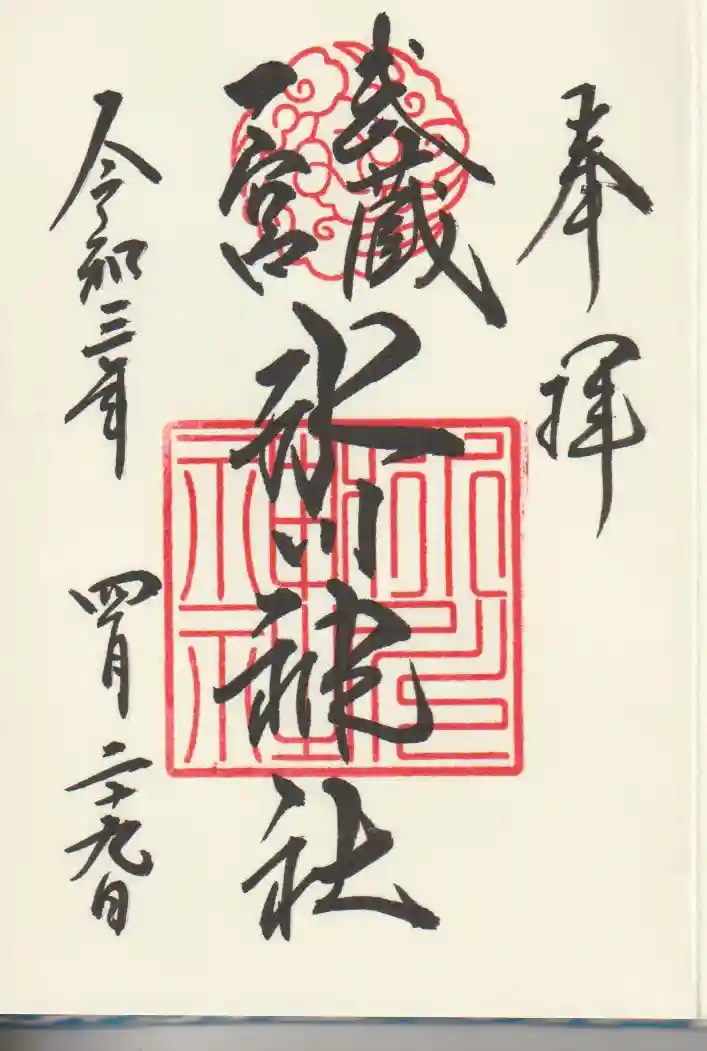 奉拝
武蔵
一宮
氷川神社
令和三年 四月二十九日